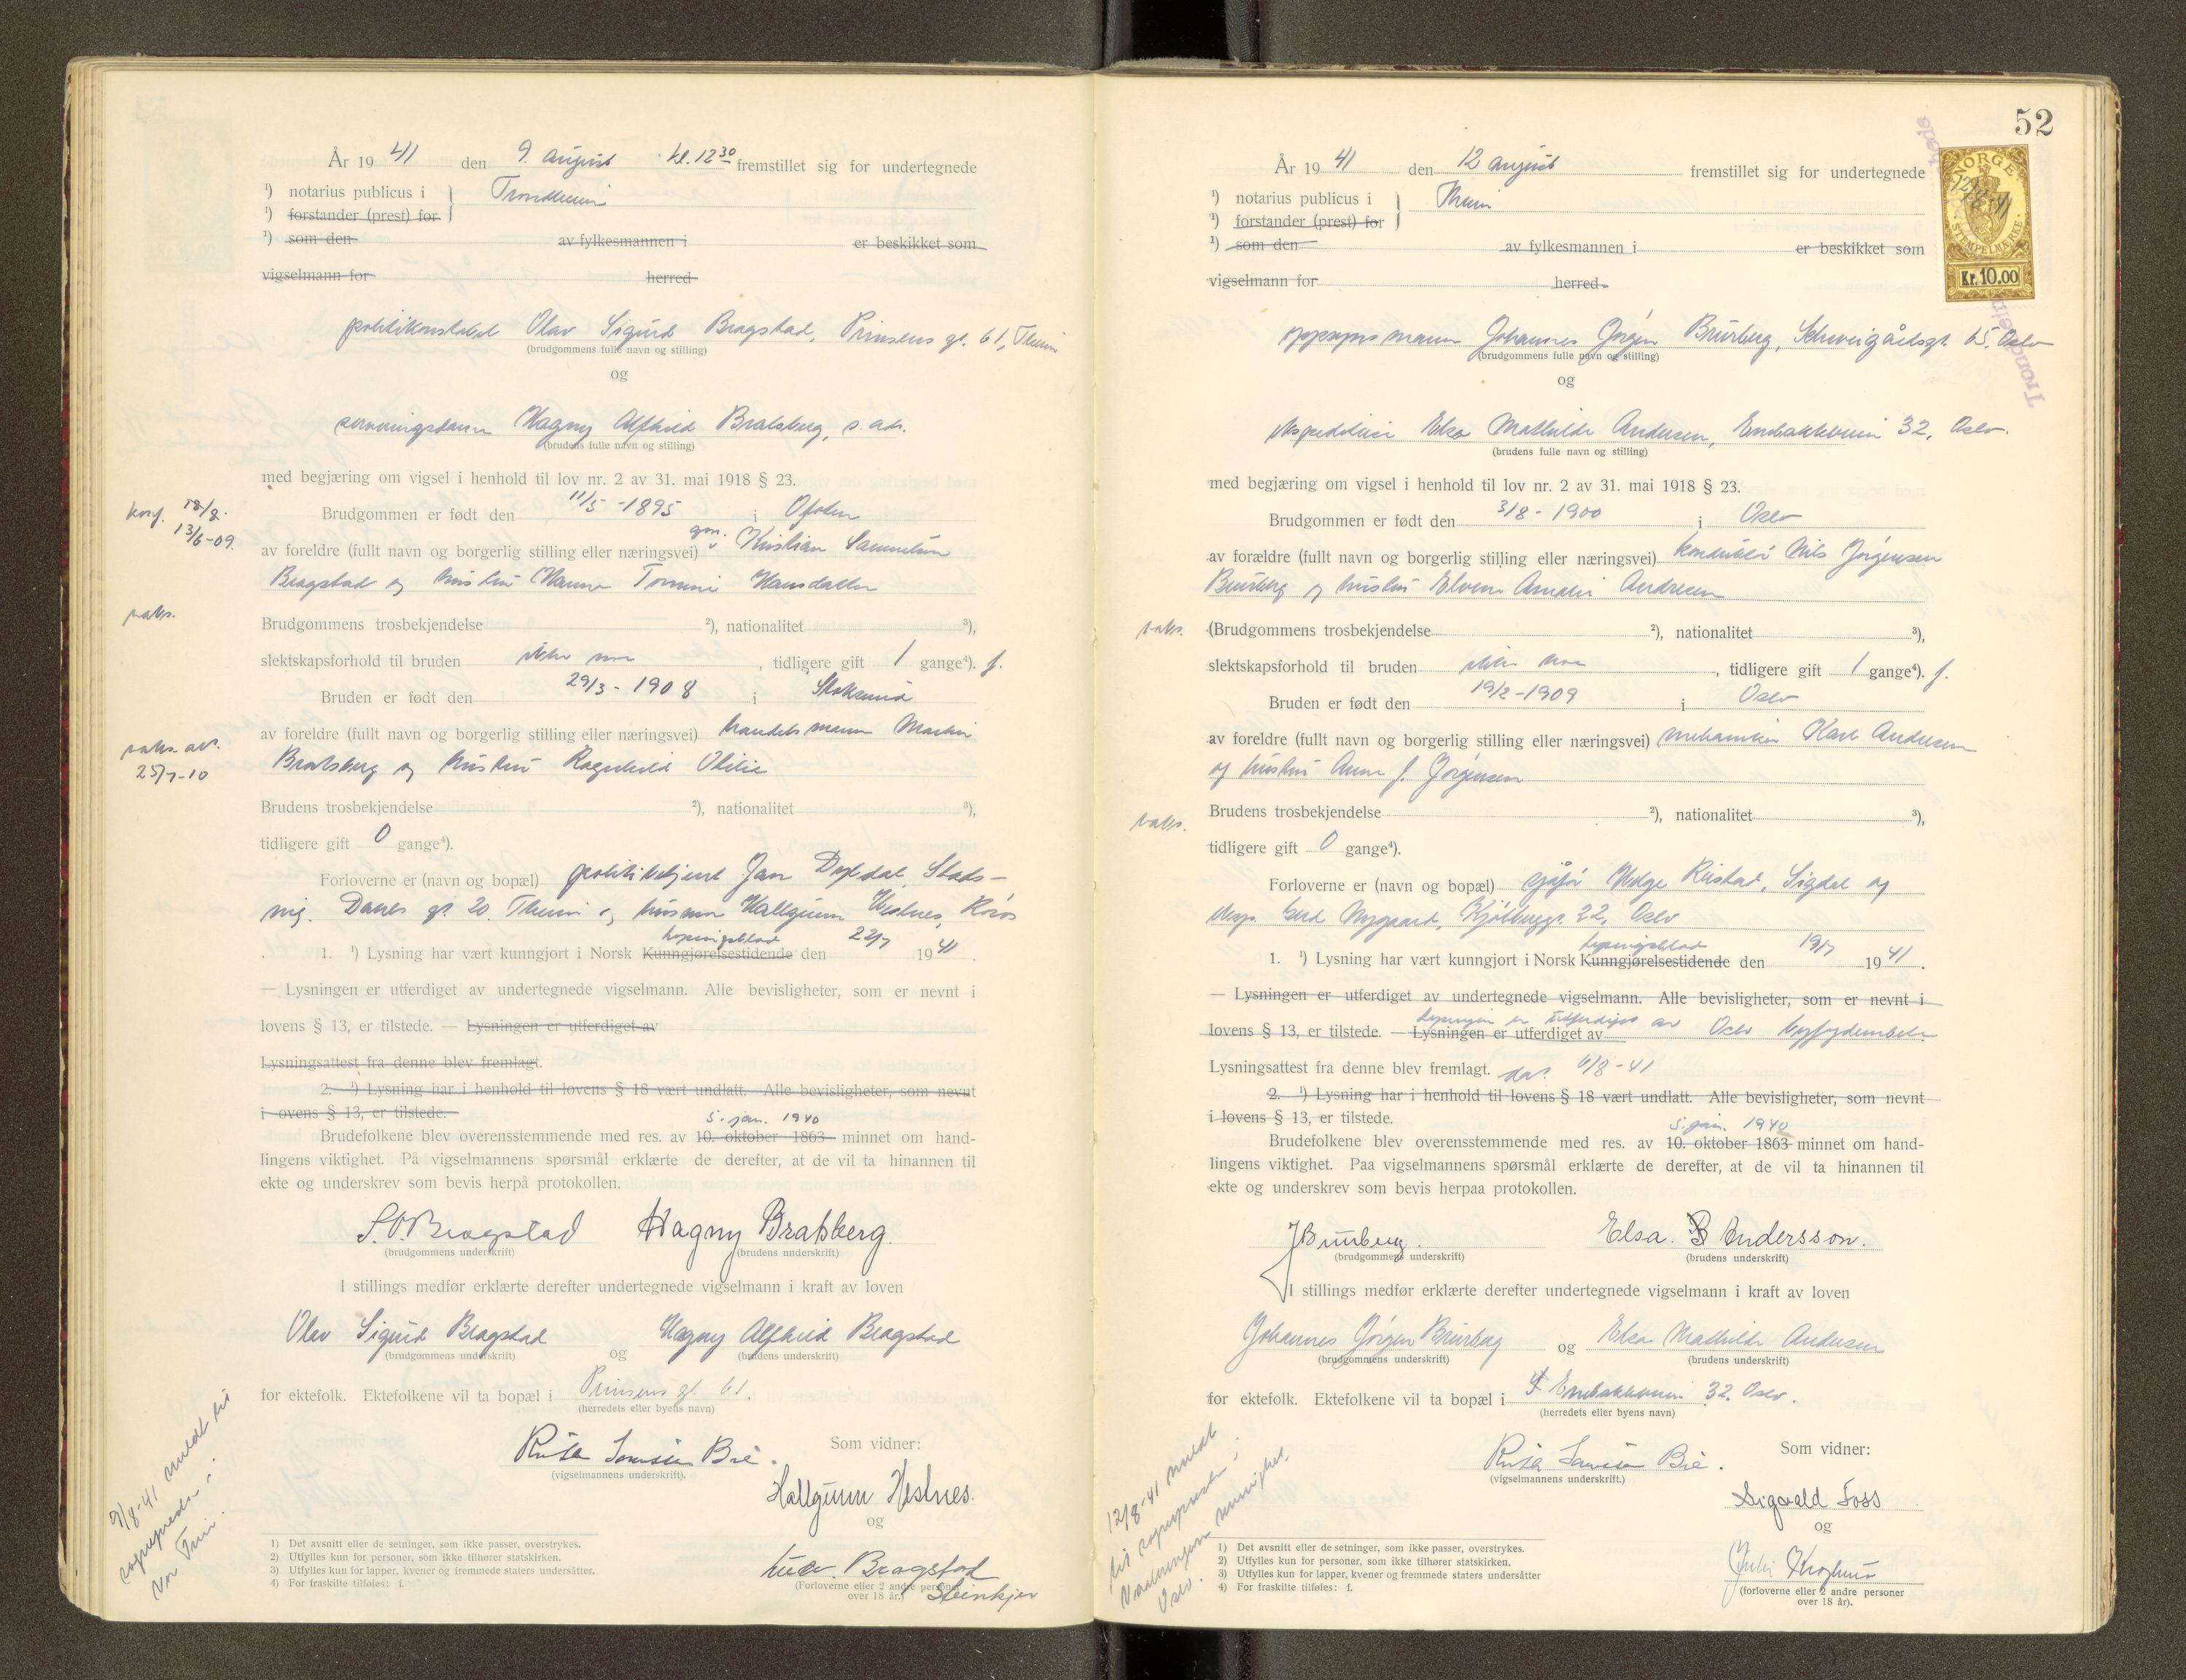 År 1941 den 9. august kl. 12 30 fremstillet sig for undertegnede
1) notarius publicus i Trondheim
1) forstander (prest) for
1) som den av fylkesmannen i er beskikket som
vigselmann for herred
politikonstabel Olav Sigurd Bragstad, Prinsens gt. 61, Theim
(brudgommens fulle navn og stilling)
og
serveringsdame Hagny Alfhild Bratsberg, s. adr.
(brudens fulle navn og stilling)
med begjæring om vigsel i henhold til lov nr. 2 av 31. mai 1918 § 23.
Brudgommen er født den 11/5 - 1895 i Ofoten
konf. 13/6-09.
av foreldre (fullt navn og borgerlig stilling eller næringsvei) Kristian
Bragstad og hustru Hanna Hansdatter
vaks.
Brudgommens trosbekjendelse 2), nationalitet 3),
slektskapsforhold til bruden ikke noe, tidligere gift 1 gange4). f.
Bruden er født den 29/3 - 1908 i Stoksund
av foreldre (fullt navn og borgerlig stilling eller næringsvei) handelsmann Martin
vaks. att. 25/7-10
Bratsberg og hustru Ragnhild Otilie
Brudens trosbekjendelse 2), nationalitet 3),
tidligere gift 0 gange4).
Forloverne er (navn og bopæl) politibetjent Jan Dyldal, Stads-
ing. Danes gt. 20. Theim og husmor Hallgunn Hestnes, Røros
lysingsblad
1. 1) Lysning har vært kunngjort i Norsk Kunngjørelsestidende den 22/7 1941.
— Lysningen er utferdiget av undertegnede vigselmann. Alle bevisligheter, som er nevnt i
lovens § 13, er tilstede. — Lysningen er utferdiget av
Lysningsattest fra denne blev fremlagt.
2. 1) Lysning har i henhold til lovens § 18 vært undlatt. Alle bevisligheter, som nevnt
i lovens § 13, er tilstede.
5. jan. 1940
Brudefolkene blev overensstemmende med res. av 10. oktober 1863 minnet om hand-
lingens viktighet. På vigselmannens spørsmål erklærte de derefter, at de vil ta hinannen til
ekte og underskrev som bevis herpå protokollen.
S.O. Bragstad Hagny Bratsberg.
(brudgommens underskrift) (brudens underskrift)
I stillings medfør erklærte derefter undertegnede vigselmann i kraft av loven
Olav Sigurd Bragstad og Hagny Alfhild Bragstad
(brudgommens underskrift) (brudens underskrift)
for ektefolk. Ektefolkene vil ta bopæl i Prinsens gt. 61.
(herredets eller byens navn)
Som vidner:
(vigselmannens underskrift).
Hallgunn Hestnes.
og
Bragstad
Steinkjer
(Forloverne eller 2 andre personer
over 18 år.)
9/8-41 meldt til
sogneprest i
Vor Frue.
1) Det avsnitt eller de setninger, som ikke passer, overstrykes.
2) Utfylles kun for personer, som ikke tilhører statskirken.
3) Utfylles kun for lapper, kvener og fremmede staters undersåtter.
4) For fraskilte tilføies: f.
52
NORGE
STEMPELMERKE.
Kr. 10.00
12/8-41
År 1941 den 12 august fremstillet sig for undertegnede
1) notarius publicus i Theim
1) forstander (prest) for
1) som den av fylkesmannen i er beskikket som
vigselmann for herred
oppsynsmann Johannes Jørgen Brurberg, Schweigårdsgt. 65. Oslo
(brudgommens fulle navn og stilling)
og
ekspeditrise Elsa Mathilde Andersen, Enebakkveien 32, Oslo.
(brudens fulle navn og stilling)
med begjæring om vigsel i henhold til lov nr. 2 av 31. mai 1918 § 23.
Brudgommen er født den 3/8 - 1900 i Oslo
av forældre (fullt navn og borgerlig stilling eller næringsvei) konduktør Nils Jørgensen
Brurberg og hustru Amalie Andresen
vaks.
(Brudgommens trosbekjendelse 2), nationalitet 3),
slektskapsforhold til bruden ikke noe, tidligere gift 1 gange4). f.
Bruden er født den 19/2 - 1909 i Oslo
av foreldre (fullt navn og borgerlig stilling eller næringsvei) mekaniker Karl Andersen
og hustru Anna f. Jørgensen
Brudens trosbekjendelse 2), nationalitet 3),
vaks.
tidligere gift 0 gange4).
Forloverne er (navn og bopæl) sjåfør Helge Ristad, Sigdal og
eksp. Gerd Nygaard, Kjølberggt. 22, Oslo
lysingsblad
1. 1) Lysning har vært kunngjort i Norsk Kunngjørelsestidende den 19/7 1941.
— Lysningen er utferdiget av undertegnede vigselmann. Alle bevisligheter, som er nevnt i
lysingen er utferdiget av Oslo byfogdembete.
lovens § 13, er tilstede. — Lysningen er utferdiget av
Lysningsattest fra denne blev fremlagt. dat. 6/8-41
2. 1) Lysning har i henhold til lovens § 18 vært undlatt. Alle bevisligheter, som nevnt
i lovens § 13, er tilstede.
5. jan. 1940
Brudefolkene blev overensstemmende med res. av 10. oktober 1863 minnet om hand-
lingens viktighet. Paa vigselmannens spørsmål erklærte de derefter, at de vil ta hinannen til
ekte og underskrev som bevis herpaa protokollen.
J Brurberg. Elsa. Andersson.
(brudgommens underskrift) (brudens underskrift)
I stillings medfør erklærte derefter undertegnede vigselmann i kraft av loven
Johannes Jørgen Brurberg og Elsa Mathilde Andersen
(brudgommens underskrift) (brudens underskrift)
for ektefolk. Ektefolkene vil ta bopæl i Enebakkveien 32. Oslo.
(herredets eller byens navn)
Som vidner:
(vigselmannens underskrift.)
Sigvald Foss
og
(forloverne eller 2 andre personer
over 18 år).
12/8-41 meldt
til sognepresten i
Vaalerengen menighet,
Oslo.
1) Det avsnitt eller de setninger, som ikke passer, overstrykes.
2) Utfylles kun for personer, som ikke tilhører statskirken.
3) Utfylles kun for lapper, kvener og fremmede staters undersåtter
4) For fraskilte tilføies: f.